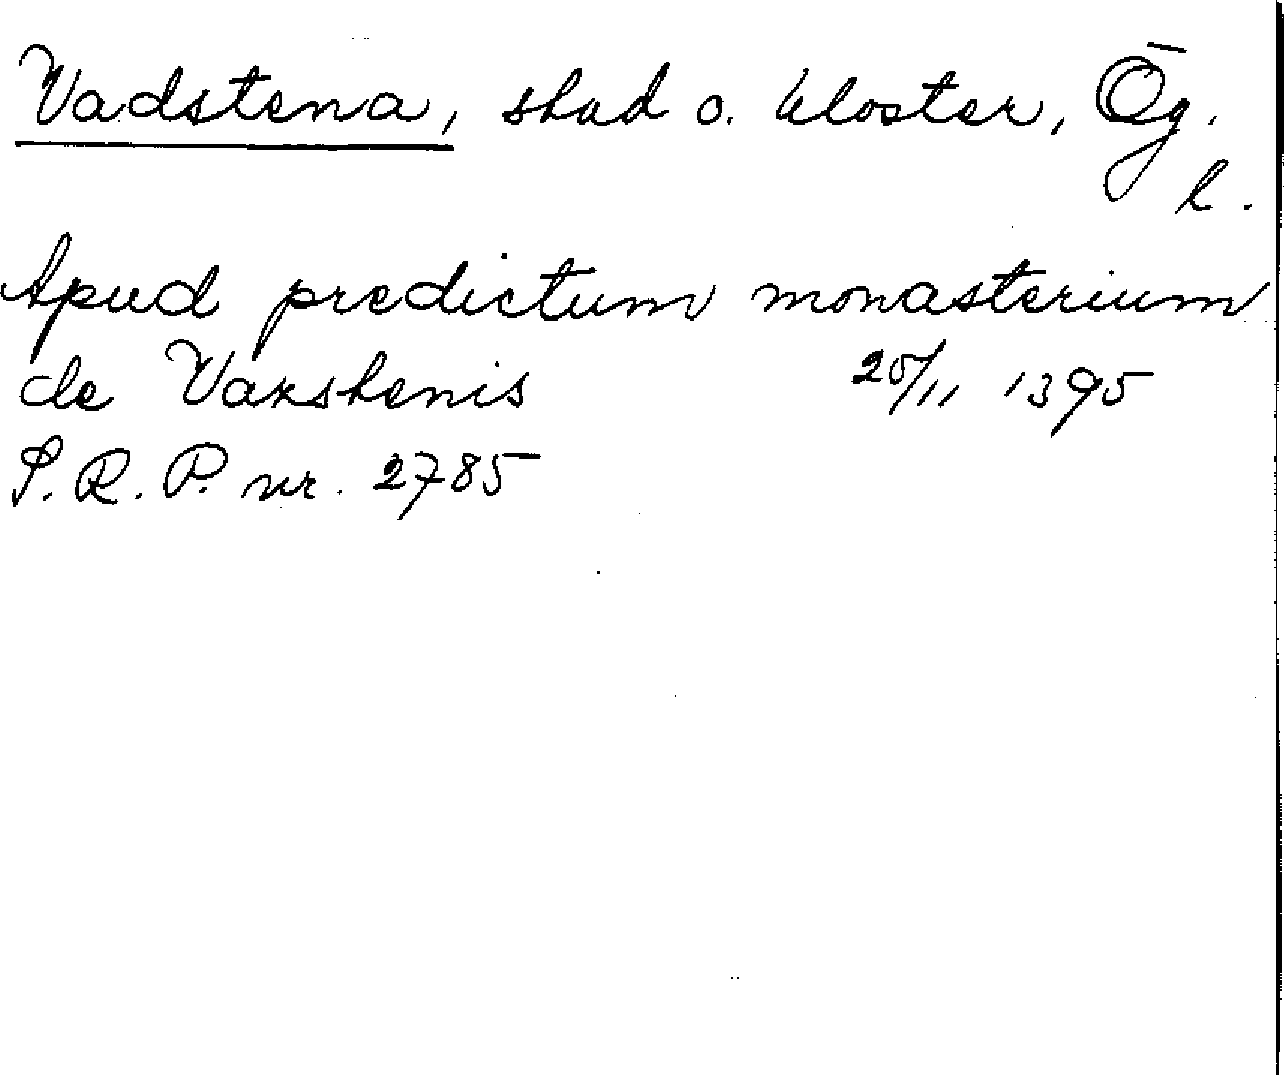 Vadstena, stad o. kloster, Ög.
l.
Apud predictum monasterium
de Vaxstenis 25/11 1395
S.R.P. nr. 2785